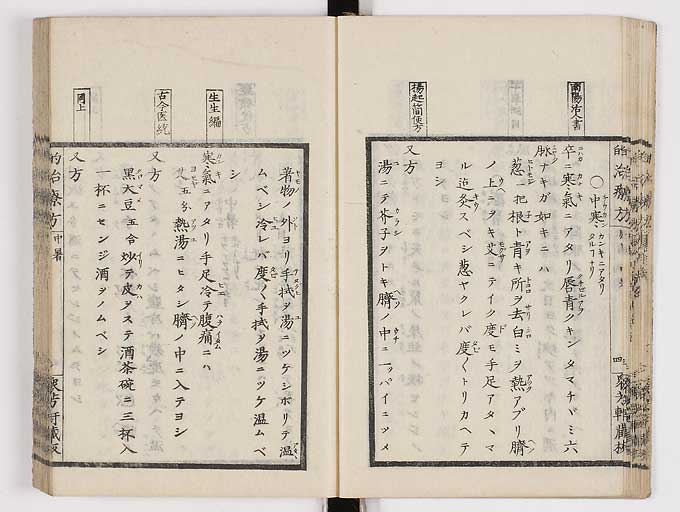 南陽活人書
〇中寒 カンキニアタリタルフナリ
卒ニ寒氣ニアタリ唇青クキンタマチヾミ六
脉ナキガ如キニハ
葱一把根ト青キ所ヲ去白ミヲ熱アブリ臍
ノ上ニヲキ艾ニテイク度モ手足アタヽマ
ル迄灸スベシ葱ヤクレバ度〱トリカヘテ
ヨシ
楊起簡便方
又方
湯ニテ芥子ヲトキ臍ノ中ニ一パイニツメ
着物ノ外ヨリ手拭ヲ湯ニツケシボリテ温
ムベシ冷レバ度〱手拭ヲ湯ニツケ温ムベ
シ
生生編
寒氣ニアタリ手足冷テ腹痛ニハ
艾五分熱湯ニヒタシ臍ノ中ニ入テヨシ
古今医統
又方
黒大豆五合炒テ皮ヲステ酒茶碗ニ三杯入
一杯ニセンジ酒ヲノムベシ
同上
又方
的治療方 中暑